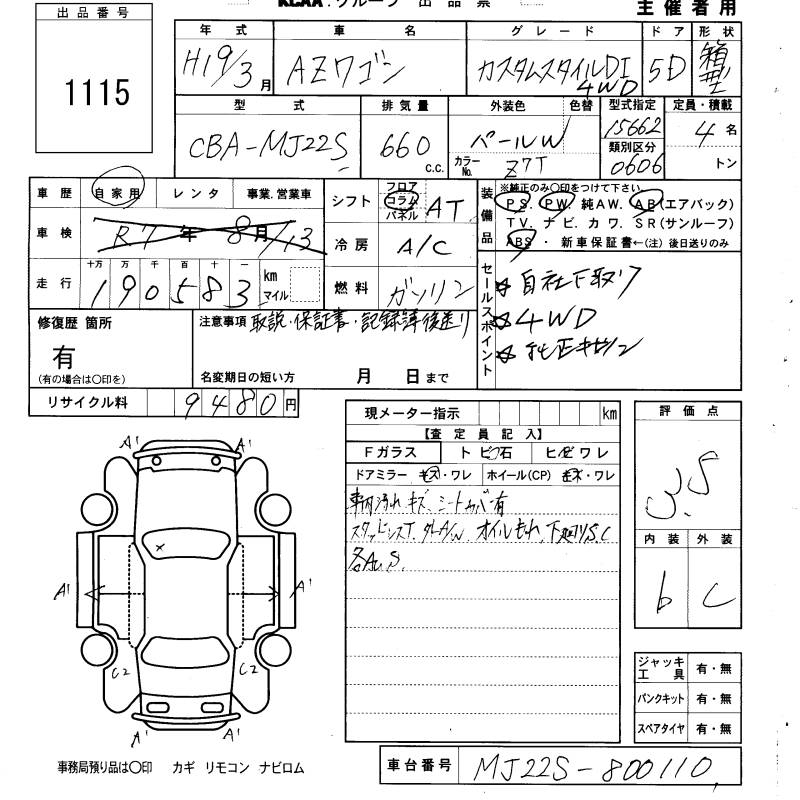 KCAA.グループ 出品票
主催者用
出品番号
1115
年式 車名 グレード ドア 形状
H19/3月 AZワゴン カスタムスタイルDI 4WD 5D 箱型
型式 排気量 外装色 色替 型式指定 定員・積載
CBA-MJ22S 660 c.c. パールW 15662 4名
カラーNo. Z7T 類別区分 0606 トン
車歴 自家用 レンタ 事業.営業車
車検 R7年8月/13
走行 十万 万 千 百 十 一
190583 km マイル
シフト フロア コラム パネル AT
冷房 A/C
燃料 ガソリン
装備品
※純正のみ○印をつけて下さい
PS. PW. 純AW. AB(エアバック)
TV. ナビ. カワ. SR(サンルーフ)
ABS ・ 新車保証書←(注) 後日送りのみ
セールスポイント
自社下取り
4WD
修復歴 箇所
有
(有の場合は○印を)
注意事項 取説・保証書・記録簿後送り
名変期日の短い方 月 日まで
リサイクル料 9480円
現メーター指示 km
【査定員記入】
Fガラス トビ石 ヒビワレ
ドアミラー キズ・ワレ ホイール(CP) キズ・ワレ
車内汚れ キズ シートカバー有
オイルもれ 下廻りS.C
評価点
3.5
内装 外装
b C
A' A'
A' A'
C2 C2
A' A'
ジャッキ工具 有・無
パンクキット 有・無
スペアタイヤ 有・無
事務局預り品は○印 カギ リモコン ナビロム
車台番号 MJ22S-800110